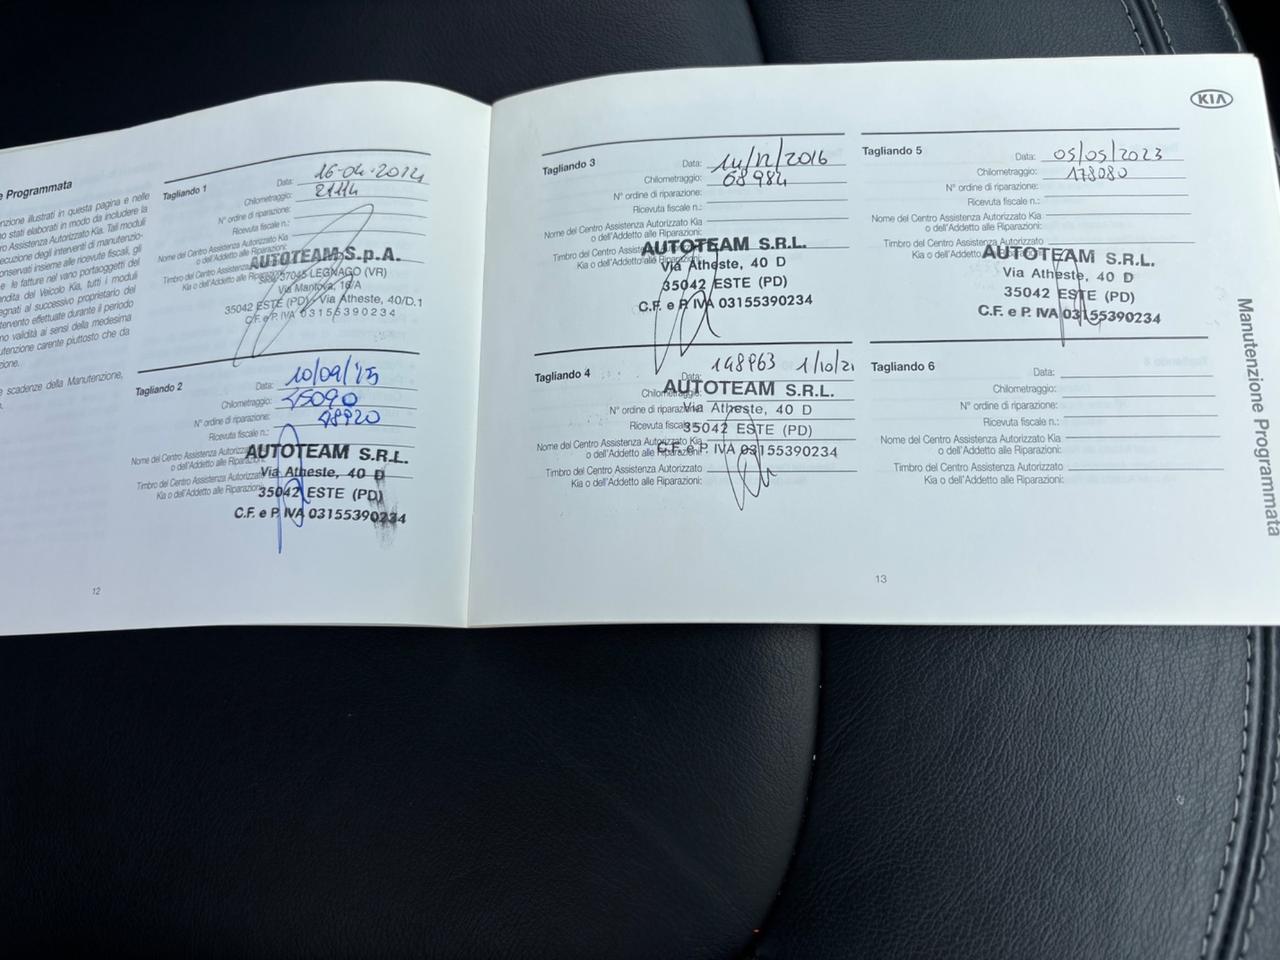 e Programmata
nzione illustrati in questa pagina e nelle
no stati elaborati in modo da includere la
ro Assistenza Autorizzato Kia. Tali moduli
ecuzione degli interventi di manutenzio-
onservati insieme alle ricevute fiscali, gli
e le fatture nel vano portaoggetti del
ndita del Veicolo Kia, tutti i moduli
egnati al successivo proprietario del
tervento effettuate durante il periodo
no validità ai sensi della medesima
utenzione carente piuttosto che da
zione.
e scadenze della Manutenzione,
Tagliando 1
Data: 16-04-2014
Chilometraggio: 21114
N° ordine di riparazione:
Ricevuta fiscale n.:
Nome del Centro Assistenza Autorizzato Kia
o dell'Addetto alle Riparazioni:
Timbro del Centro Assistenza Autorizzato
Kia o dell'Addetto alle Riparazioni:
AUTOTEAM S.p.A.
37045 LEGNAGO (VR)
Via Mantova, 16/A
35042 ESTE (PD) Via Atheste, 40/D.1
C.F. e P. IVA 03155390234
Tagliando 2
Data: 10/09/15
Chilometraggio: 45090
N° ordine di riparazione:
Ricevuta fiscale n.:
Nome del Centro Assistenza Autorizzato Kia
o dell'Addetto alle Riparazioni:
Timbro del Centro Assistenza Autorizzato
Kia o dell'Addetto alle Riparazioni:
AUTOTEAM S.R.L.
Via Atheste, 40 D
35042 ESTE (PD)
C.F. e P. IVA 03155390234
12
KIA
Tagliando 3
Data: 14/12/2016
Chilometraggio: 68984
N° ordine di riparazione:
Ricevuta fiscale n.:
Nome del Centro Assistenza Autorizzato Kia
o dell'Addetto alle Riparazioni:
Timbro del Centro Assistenza Autorizzato
Kia o dell'Addetto alle Riparazioni:
AUTOTEAM S.R.L.
Via Atheste, 40 D
35042 ESTE (PD)
C.F. e P. IVA 03155390234
Tagliando 4
Data: 148963 1/10/21
Chilometraggio:
N° ordine di riparazione:
Ricevuta fiscale n.:
Nome del Centro Assistenza Autorizzato Kia
o dell'Addetto alle Riparazioni:
Timbro del Centro Assistenza Autorizzato
Kia o dell'Addetto alle Riparazioni:
AUTOTEAM S.R.L.
Via Atheste, 40 D
35042 ESTE (PD)
C.F. e P. IVA 03155390234
Tagliando 5
Data: 05/05/2023
Chilometraggio: 178080
N° ordine di riparazione:
Ricevuta fiscale n.:
Nome del Centro Assistenza Autorizzato Kia
o dell'Addetto alle Riparazioni:
Timbro del Centro Assistenza Autorizzato
Kia o dell'Addetto alle Riparazioni:
AUTOTEAM S.R.L.
Via Atheste, 40 D
35042 ESTE (PD)
C.F. e P. IVA 03155390234
Tagliando 6
Data:
Chilometraggio:
N° ordine di riparazione:
Ricevuta fiscale n.:
Nome del Centro Assistenza Autorizzato Kia
o dell'Addetto alle Riparazioni:
Timbro del Centro Assistenza Autorizzato
Kia o dell'Addetto alle Riparazioni:
13
Manutenzione Programmata